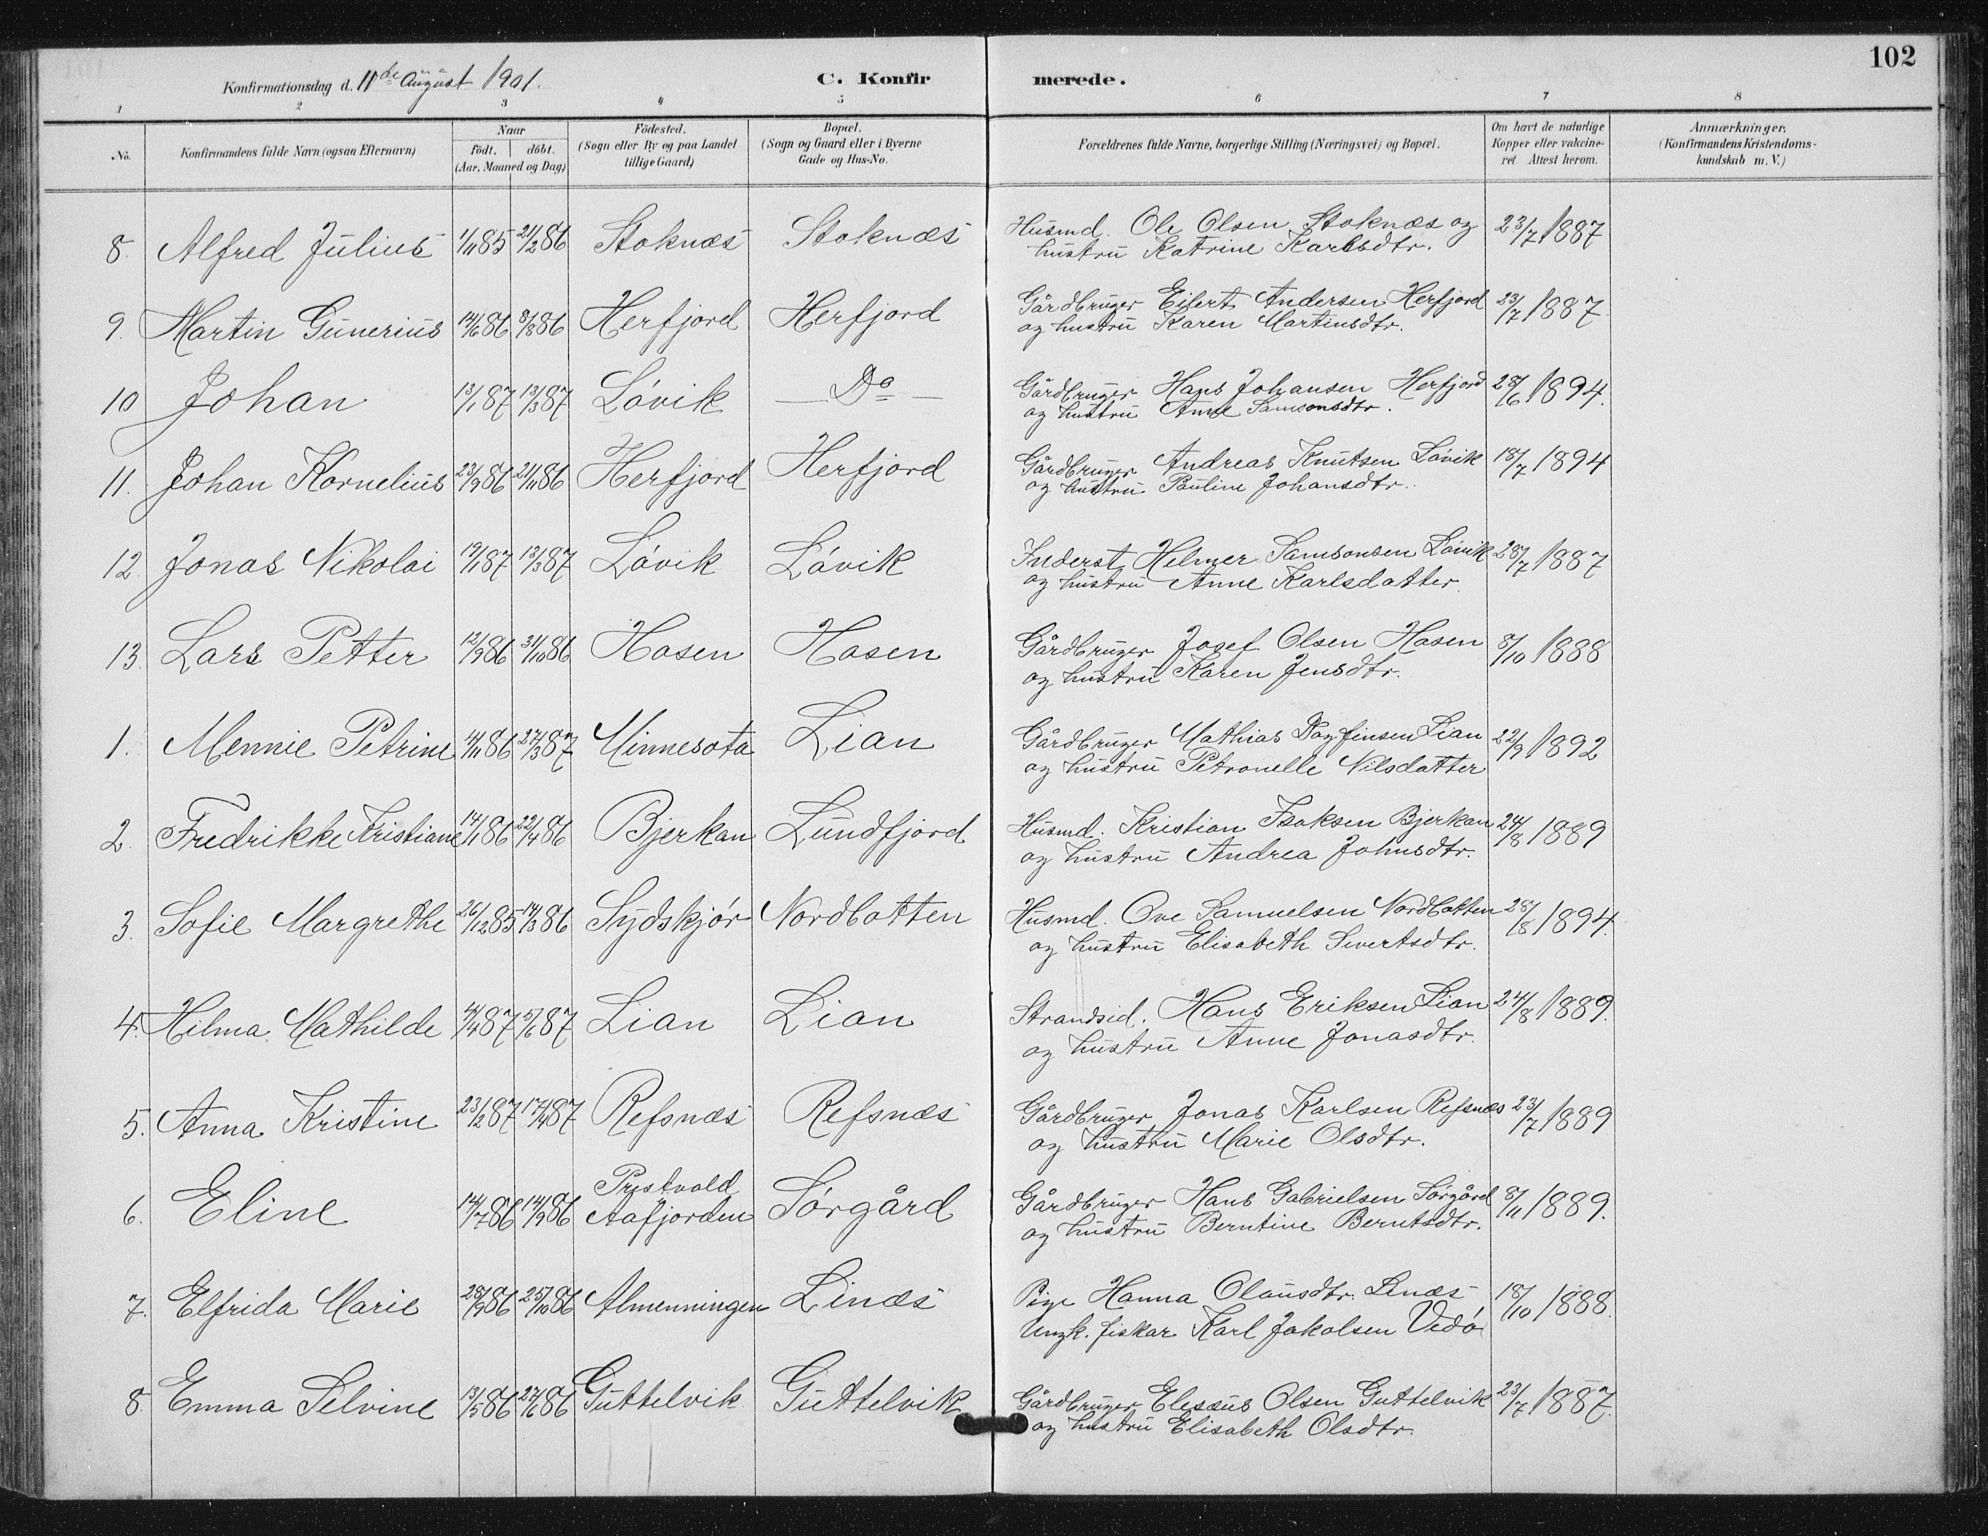 102
Konfirmationsdag d. 11de August 1901.
C. Konfirmerede.
1 2 3 4 5 6 7 8
No. Konfirmandens fulde Navn (ogsaa Efternavn) Naar födt. döbt. (Aar, Maaned og Dag) Födested. (Sogn eller By og paa Landet tillige Gaard) Bopæl. (Sogn og Gaard eller i Byerne Gade og Hus-No. Forældrenes fulde Navne, borgerlige Stilling (Næringsvei) og Bopæl. Om havt de naturlige Kopper eller vakcineret Attest herom. Anmærkninger. (Konfirmandens Kristendomskundskab m. V.)
8. Alfred Julius 1/11 85 21/2 86 Stoknæs Stoknæs Husmd. Ole Olsen Stoknæs og 23/7 1887
hustru Katrine Karlsdtr.
9. Martin Gunerius 14/6 86 8/8 86 Herfjord Herfjord Gårdbruger Eilert Andersen Herfjord 23/7 1887
og hustru Karen Martinsdtr.
10 Johan 13/1 87 13/3 87 Lövik Do Gårdbruger Hans Johansen Herfjord 28/6 1894.
og hustru Anne Samsonsdtr.
11. Johan Kornelius 23/9 86 21/11 86 Herfjord Herfjord Gårdbruger Andreas Knutsen Lövik 18/7 1894
og hustru Pauline Johansdtr.
12. Jonas Nikolai 19/1 87 13/3 87 Lövik Lövik Inderst Helmer Samsonsen Lövik 28/7 1887
og hustru Anne Karlsdatter.
13. Lars Petter 12/9 86 31/10 86 Hosen Hosen Gårdbruger Josef Olsen Hosen 8/10 1888
og hustru Karen Jensdtr.
1. Mennie Petrine 14/11 86 27/3 87 Minnesota Lian Gårdbruger Mathias Dagfinsen Lian 22/9 1892
og hustru Petronelle Nilsdatter
2. Fredrikke Kristiane 14/1 86 22/4 86 Bjerkan Lundfjord Husmd. Kristian Isaksen Bjerkan 24/8 1889
og hustru Andrea Johnsdtr.
3. Sofie Margrethe 26/12 85 14/3 86 Sydskjör Nordbotten Husmd. Ove Samuelsen Nordbotten 28/8 1894.
og hustru Elisabeth Sivertsdtr.
4. Hilma Mathilde 4/4 87 5/6 87 Lian Lian Strandsid. Hans Eriksen Lian 24/8 1889.
og hustru Anne Jonasdtr.
5. Anna Kristine 23/2 87 17/4 87 Refsnæs Refsnæs Gårdbruger Jonas Karlsen Refsnæs 23/7 1889
og hustru Marie Olsdtr.
6. Eline 14/7 86 14/9 86 Prestvold Aafjorden Sörgård Gårdbruger Hans Gabrielsen Sörgård 8/11 1889.
og hustru Berntine Berntsdtr.
7. Elfrida Marie 28/9 86 25/10 86 Almenningen Linæs Pige Hanna Olausdtr. Linæs 18/10 1888.
Ungk. fisker Karl Jakobsen Vedö
8. Emma Selvine 13/5 86 27/6 86 Guttelvik Guttelvik Gårdbruger Elesæus Olsen Guttelvik 23/7 1887.
og hustru Elisabeth Olsdtr.